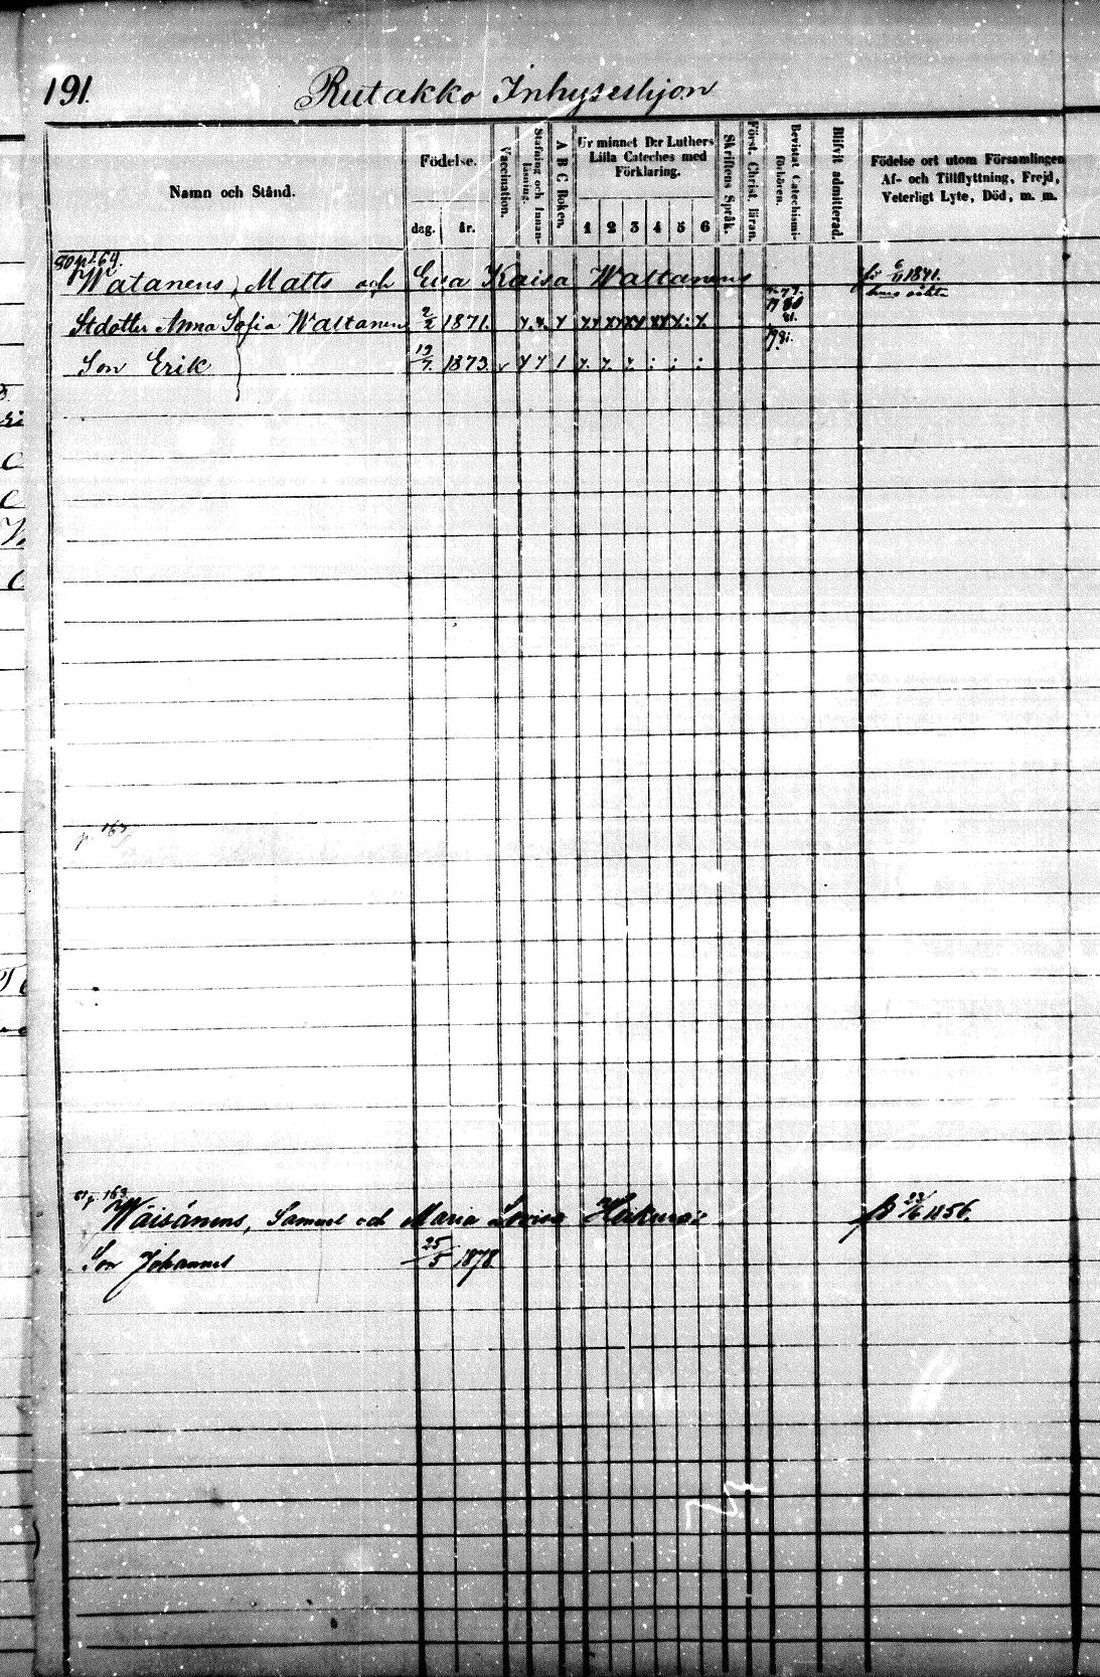 191.
Rutakko Inhyseshjon
Namn och Stånd.
Födelse.
dag. år.
Vaccination.
Stafning och Innan-
läsning.
A B C Boken.
Ur minnet D:r Luthers
Lilla Cateches med
Förklaring.
1 2 3 4 5 6
Skriftens Språk.
Först. Christ. läran.
Bevistat Catechismi-
förhören.
Blifvit admitterad.
Födelse ort utom Församlingen
Af- och Tillflyttning, Frejd,
Veterligt Lyte, Död, m. m.
80 p. 164.
Watanens, Matts och Eva Kaisa Waltanens 1841.
Stdotter Anna Sofia Waltanens 2/2 1871.
Son Erik 19/7. 1873.
p. 163
81 p. 163.
Wäisänens, Samuel och Maria Lovisa 1856.
Son Johannes 25/5 1878